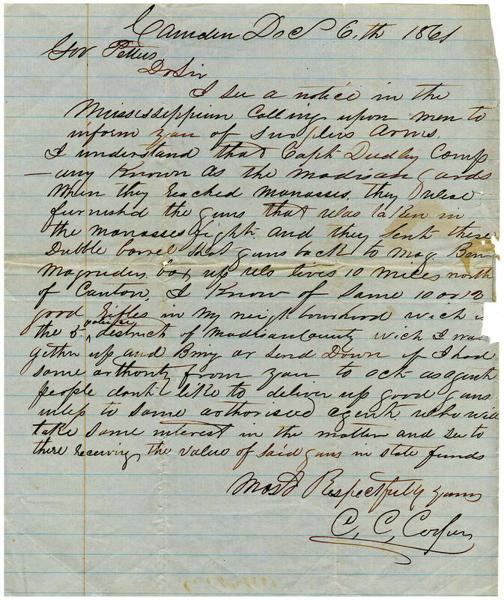 Camden Dec 6.th 1861
Gov Pettus
Dr Sir
I see a notice in the
Mississippian Calling upon men to
inform you of Surplus Arms.
I understand that Capt Dudley Comp
-any Known as the Madison Guards
When they Reached Manasses, they
furnish'd the guns that was taken in
the Manasses fight and they sent there
Dubble barrel Shot guns back to Maj Ben
Magruders, who lives 10 Miles north
of Canton, I Know of Some 10 or 12
good Rifles in my neighbourhood wich is
the 5 district of Madison County wich I would
gether up and Bring or Send Down if I had
some authority from you to act as agent
People dont like to deliver up good guns
unless to Some authorised agent who will
take Some interest in the matter and See to
there receiving the value of Said guns in state funds
Most Respectfully yours
C. C. Cooper